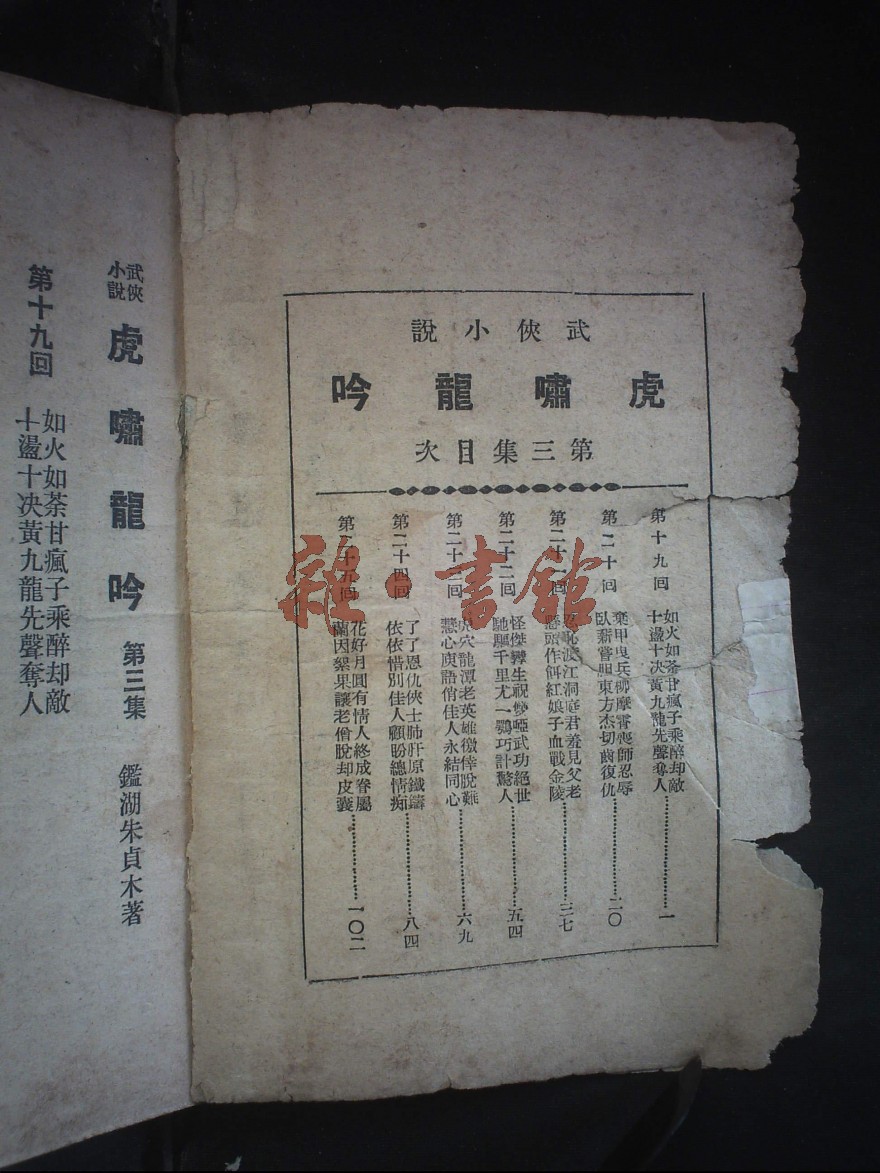 武俠小說
虎嘯龍吟
第三集目次
第十九回
如火如荼甘瘋子乘醉却敵
十盪十决黃九龍先聲奪人
一
第二十回
棄甲曳兵柳摩霄喪師忍辱
臥薪嘗胆東方杰切齒復仇
二〇
第二十一回
渡江洞庭君羞見父老
懸頭作餌紅娘子血戰金陵
三七
第二十二回
怪傑孿生祝雙啞武功絕世
馳驅千里尤一鶚巧計驚人
五四
第二十三回
虎穴龍潭老英雄徼倖脫難
慧心庾語俏佳人永結同心
六九
第二十四回
了了恩仇俠士肺肝原鐵鑄
依依惜別佳人顧盼總情痴
八四
第二十五回
花好月圓有情人終成眷屬
蘭因絮果讓老僧脫却皮囊
一〇二
雜·書館
武俠小說
虎嘯龍吟
第三集
鑑湖朱貞木著
第十九回
如火如荼甘瘋子乘醉却敵
十盪十决黃九龍先聲奪人